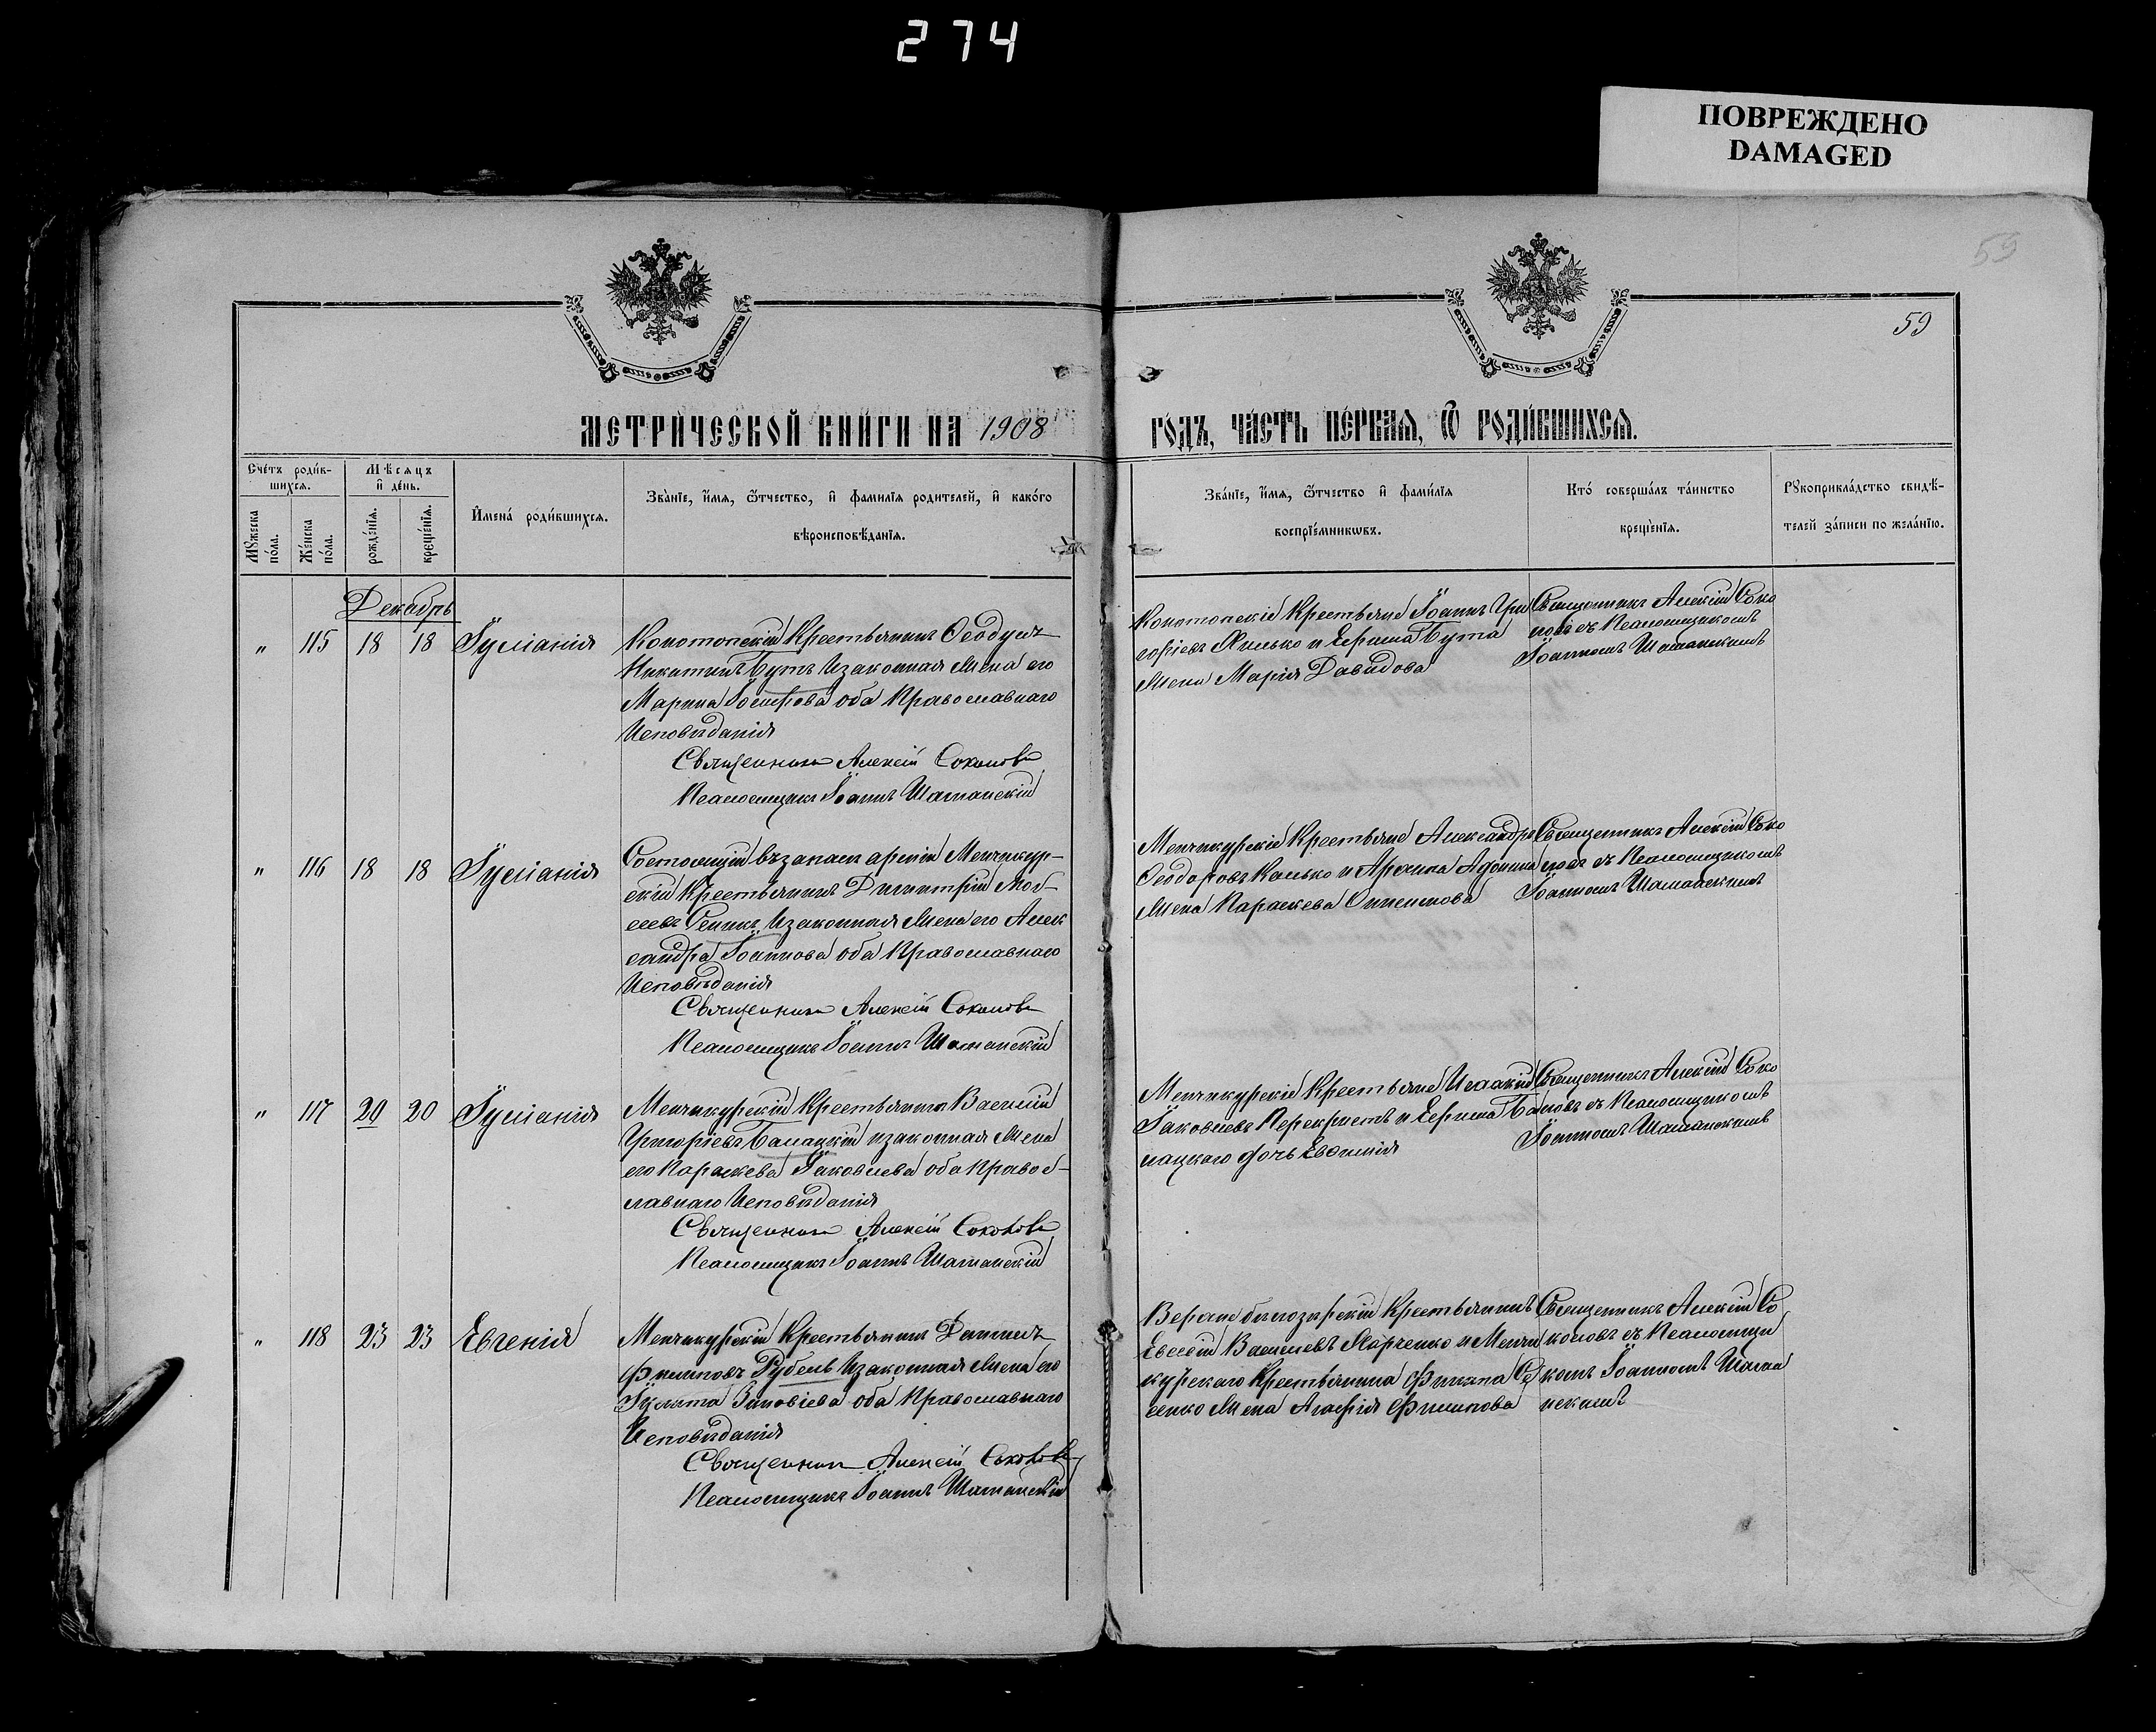 274
ПОВРЕЖДЕНО
DAMAGED
59
59
МЕТРИЧЕСКОЙ КНИГИ НА 1908
ГОДЪ, ЧАСТЬ ПЕРВАЯ, Ѿ РОДИВШИХСЯ.
Счетъ родив-
шихся.
Мужеска
пола.
Женска
пола.
Мѣсяцъ
и день.
рожденія.
крещенія.
Имена родившихся.
Званіе, имя, ѿтчество, и фамилія родителей, и какого
вѣроисповѣданія.
Званіе, имя, ѿтчество и фамилія
воспріемниковъ.
Кто совершалъ таинство
крещенія.
Рукоприкладство свидѣ-
телей записи по желанію.
Декабрь
" 115 18 18 Іуліанія
Конотопскій Крестьянинъ Ѳеодулъ
Никитинъ Бутъ и законная жена его
Марина Іосифова оба Православнаго
Исповѣданія
Священникъ Алексій Соколовъ
Псаломщикъ Іоаннъ Шатанскій
Конотопскіе Крестьяне Іоаннъ Гри
горіевъ и Ефима Бута
жена Марія Давидова
Священникъ Алексій Соко
ловъ съ Псаломщикомъ
Іоанномъ Шатанскимъ
" 116 18 18 Іуліанія
Состоящій въ запасѣ арміи Менчикур-
скій Крестьянинъ Димитрій
и законная жена его Алек
сандра Іоаннова оба Православнаго
Исповѣданія
Священникъ Алексій Соколовъ
Псаломщикъ Іоаннъ Шатанскій
Менчикурскіе Крестьяне Александръ
Ѳеодоровъ Калько и Архипа
жена Параскева Онисимова
Священникъ Алексій Соко
ловъ съ Псаломщикомъ
Іоанномъ Шатанскимъ
" 117 20 20 Іуліанія
Менчикурскій Крестьянинъ Василій
Григоріевъ Балацкій и законная жена
его Параскева Іаковлева оба Правос-
лавнаго Исповѣданія
Священникъ Алексій Соколовъ
Псаломщикъ Іоаннъ Шатанскій
Менчикурскіе Крестьяне Исаакій
Іаковлевъ Перехристъ и Ефима Ба
лацкаго дочь Евфимія
Священникъ Алексій Соко
ловъ съ Псаломщикомъ
Іоанномъ Шатанскимъ
" 118 23 23 Евгенія
Менчикурскій Крестьянинъ Даніилъ
Филиповъ Рубель и законная жена его
Іулита Зиновіева оба Православнаго
Исповѣданія
Священникъ Алексій Соколовъ
Псаломщикъ Іоаннъ Шатанскій
Верхнебилозирскій Крестьянинъ
Евсевій Васильевъ и Менчи
курскаго Крестьянина Филипа
жена Агафія Филипова
Священникъ Алексій Со
коловъ съ Псаломщи
комъ Іоанномъ Шата
нскимъ